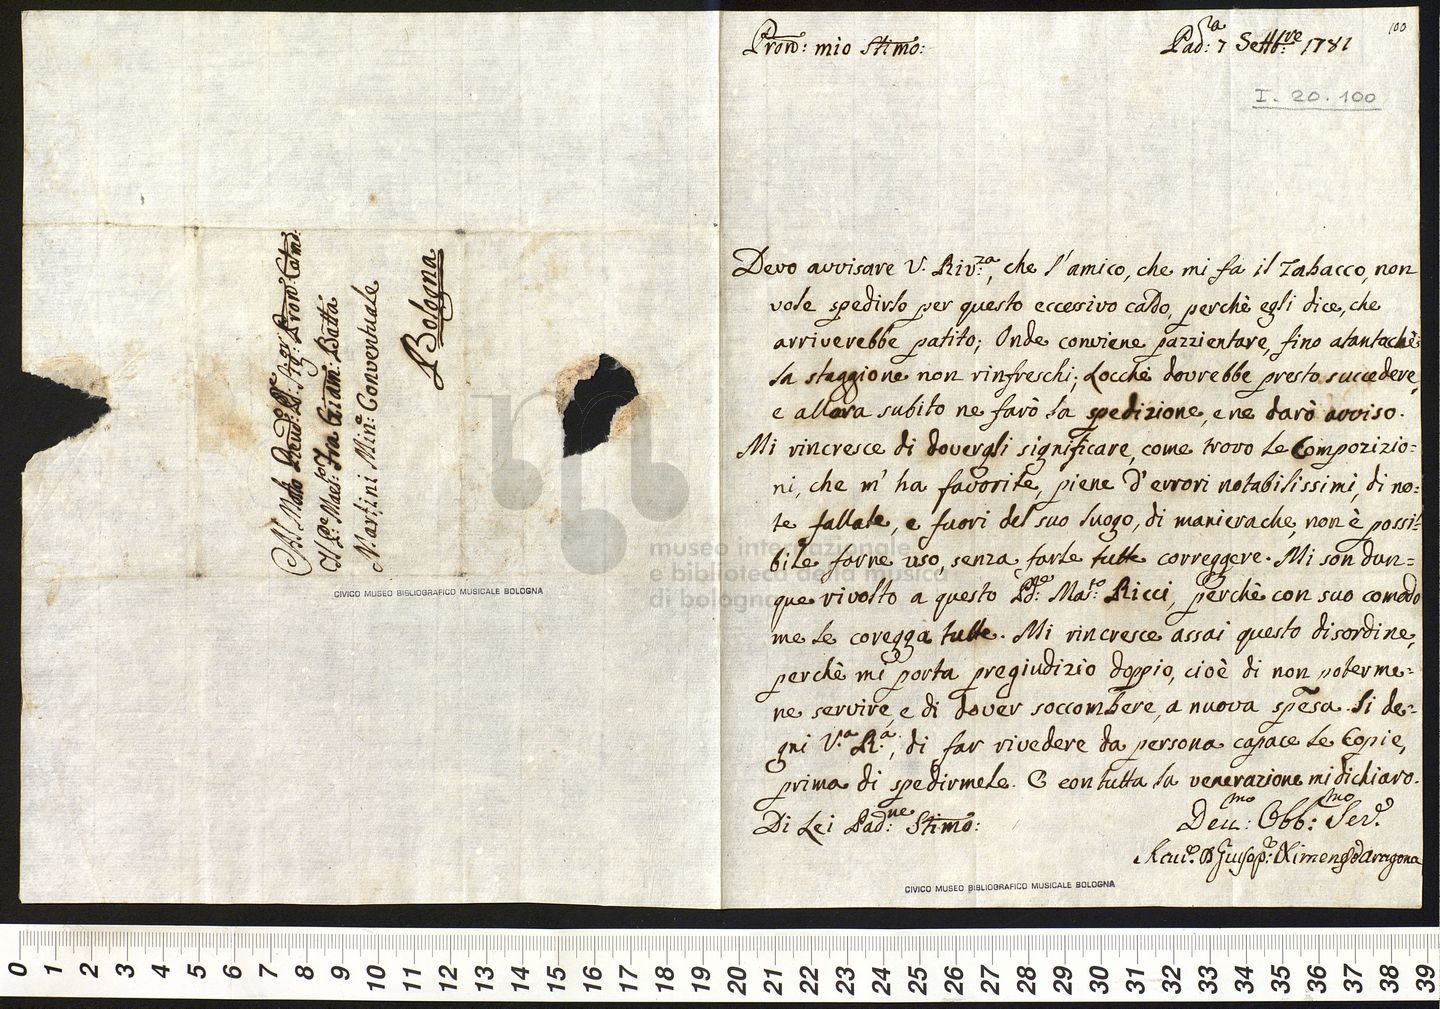 100
Pron: mio Stimo:
Pad:a 7 Settbre 1781
I. 20. 100
Devo avvisare V. Riv:za, che l'amico, che mi fa il Tabacco, non
vole spedirlo per questo eccessivo caldo, perchè egli dice, che
arriverebbe patito; Onde conviene pazzientare, fino atantachè
la staggione non rinfreschi; Locchè dovrebbe presto succedere,
e allora subito ne farò la spedizione, e ne darò avviso.
Mi rincresce di dovergli significare, come trovo le Compozizio=
ni, che m'ha favorite, piene d'errori notabilissimi, di no=
te fallate, e fuori del suo luogo, di manierache, non è possi=
bile farne uso, senza farle tutte correggere. Mi son dun=
que rivolto a questo Pd:re Mas:to Ricci, perchè con suo comodo
me le coregga tutte. Mi rincresce assai questo disordine,
perchè mi porta pregiudizio doppio, cioè di non poterme=
ne servire, e di dover soccombere, a nuova spesa. Si de=
gni V:a R:a, di far rivedere da persona capace le Copie,
prima di spedirmele. E con tutta la venerazione mi dichiaro.
Di Lei Pad:ne Stimo:
Dev:mo Obb:mo Ser.e
Ximenes d'Aragona
Al Molto Revdo: Sig:or Pron: Colmo:
Il P:re Maes:o Fra Giam: Batta
Martini Min: Conventuale
Bologna
CIVICO MUSEO BIBLIOGRAFICO MUSICALE BOLOGNA
CIVICO MUSEO BIBLIOGRAFICO MUSICALE BOLOGNA
museo internazionale
e biblioteca della musica
di bologna
0 1 2 3 4 5 6 7 8 9 10 11 12 13 14 15 16 17 18 19 20 21 22 23 24 25 26 27 28 29 30 31 32 33 34 35 36 37 38 39